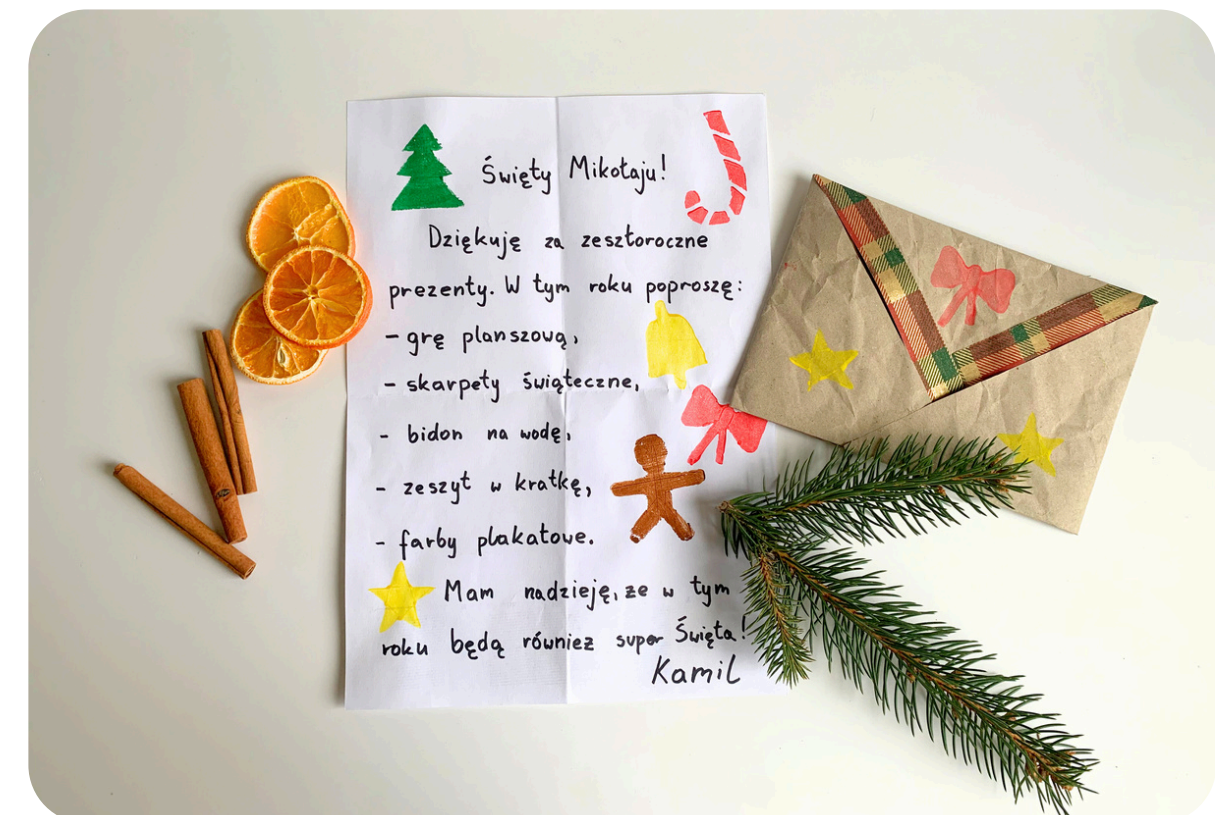 Święty Mikołaju!
Dziękuję za zesztoroczne
prezenty. W tym roku poproszę:
- grę planszową,
- skarpety świąteczne,
- bidon na wodę,
- zeszyt w kratkę,
- farby plakatowe.
Mam nadzieję, że w tym
roku będą również super Święta!
Kamil